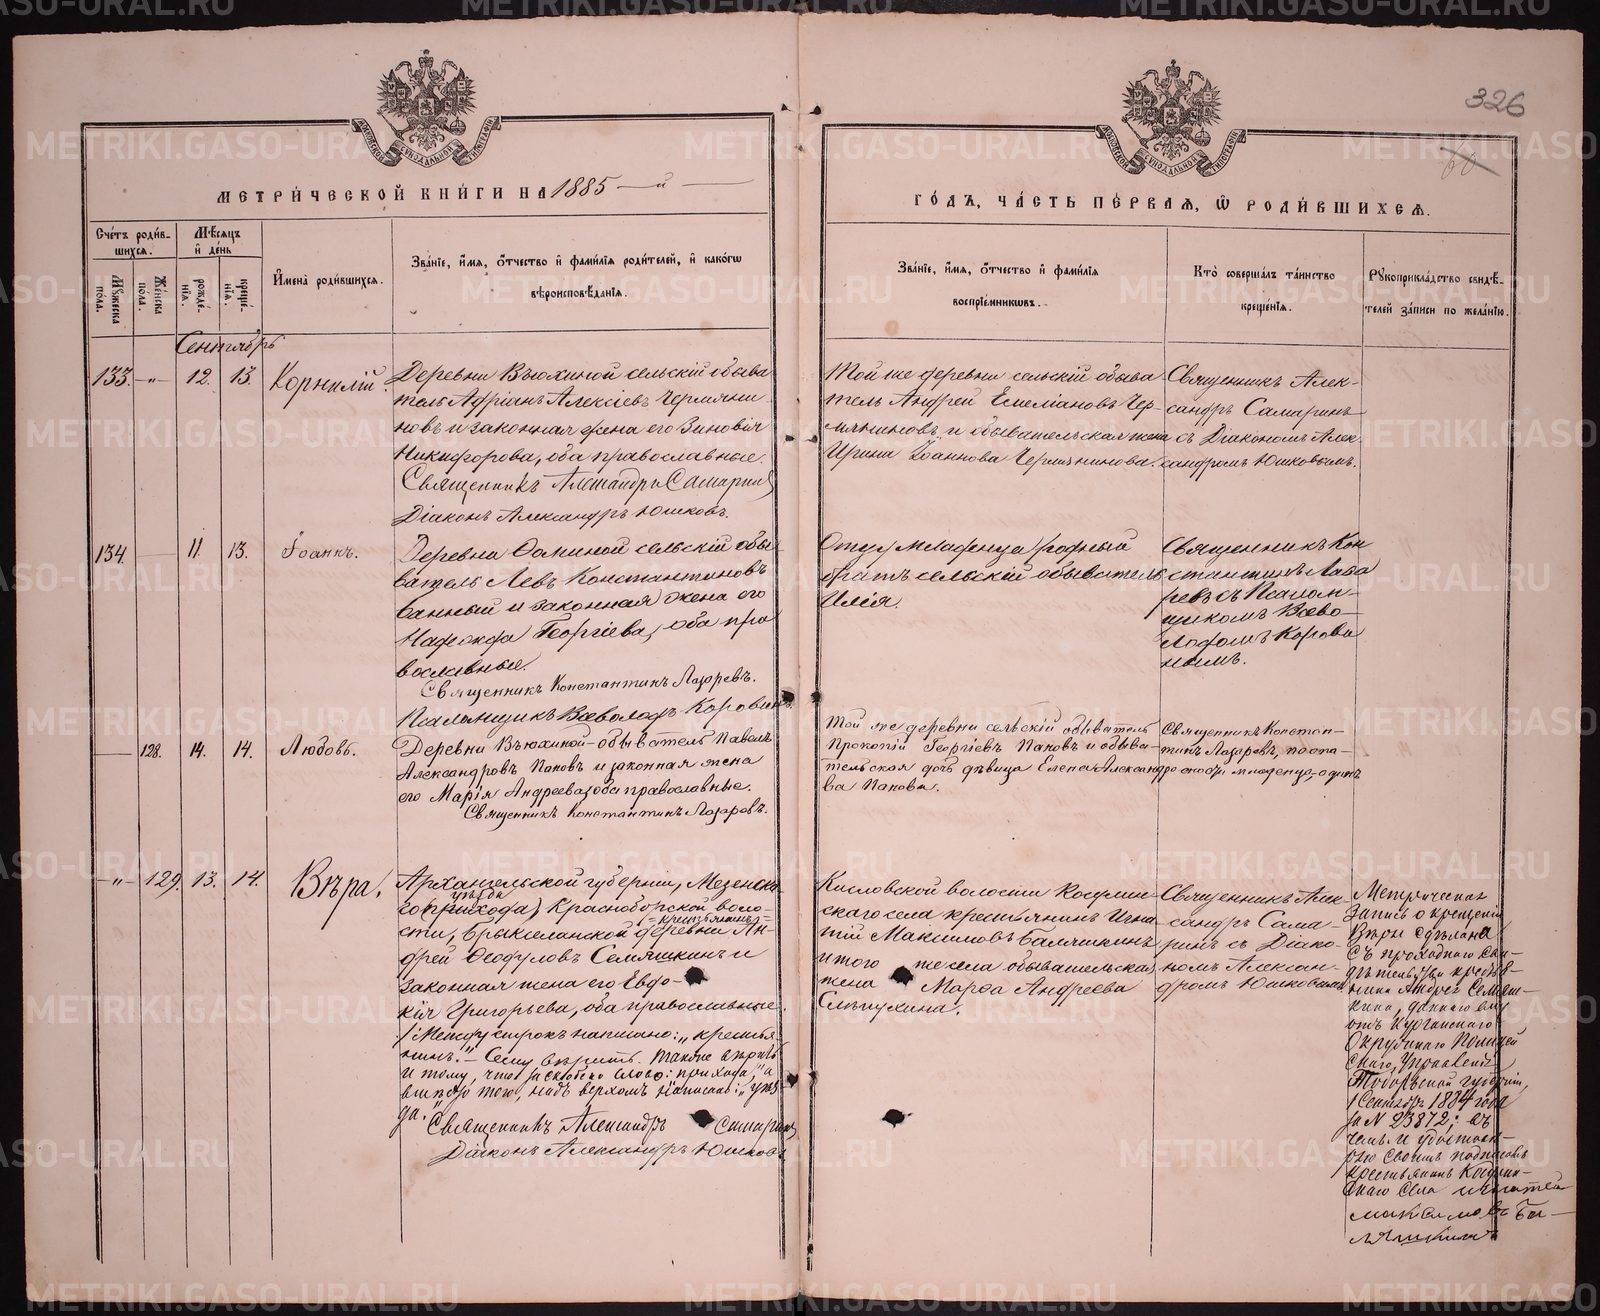 326
60
МЕТРИ́ЧЕСКОЙ КНИ́ГИ НА 1885 — й —
ГО́ДЪ, ЧА́СТЬ ПЕ́РВАЯ, Ѡ РОДИ́ВШИХСЯ.
Сче́тъ роди́в-
шихся.
Мѣ́сяцъ
и́ де́нь
Му́жеска
по́ла.
Же́нска
по́ла.
рожде́-
нїя.
креще́-
нїя.
И҆мена̀ роди́вшихся.
Зва́нїе, и҆́мя, о҆́тчество и҆ фами́лїя роди́телей, и҆ како́гѡ
вѣроисповѣ́данїя.
Зва́нїе, и҆́мя, о҆́тчество и҆ фами́лїя
воспрїе́мникѡвъ.
Кто̀ соверша́лъ та́инство
креще́нїя.
Рꙋкоприкла́дство свидѣ́-
телей за́писи по жела́нїю.
Сентябрь
133. -„- 12. 13. Корнилій.
Деревни Вьюхиной сельскій обыва
тель Адріанъ Алексіевъ Чермяни
новъ и законная жена его Зиновія
Никифорова, оба православные.
Священникъ Александръ Самаринъ
Діаконъ Александръ Юшковъ.
Той же деревни сельскій обыва
тель Андрей Емеліановъ Чер-
мяниновъ и обывательская жена
Ирина Іоаннова Чермянинова.
Священникъ Алек-
сандръ Самаринъ
съ Діакономъ Алек-
сандромъ Юшковымъ.
134. — 11. 13. Іоаннъ.
Деревни Ѳоминой сельскій обы
ватель Левъ Константиновъ
Банный и законная жена его
Георгіева, оба пра
вославные.
Священникъ Константинъ Лазаревъ.
Псаломщикъ Всеволодъ Коровинъ.
Отцу младенца родный
братъ сельскій обыватель
Илія.
Священникъ Кон
стантинъ Лаза
ревъ съ Псалом-
щикомъ Всево-
лодомъ Корови
нымъ.
— 128. 14. 14. Любовь.
Деревни Вьюхиной обыватель Павелъ
Александровъ Пановъ и законная жена
его Марія Андреева, оба православные.
Священникъ Константинъ Лазаревъ.
Той же деревни сельскій обыватель
Прокопій Георгіевъ Пановъ и обыва-
тельская дочь дѣвица Елена Александро
ва Панова.
Священникъ Констан-
тинъ Лазаревъ, по опа-
сности младенца, одинъ
-„- 129. 13. 14. Вѣра.
Архангельской губерніи, Мезенска-
уѣзда
го (прихода) Красноборской воло-
=крестьянинъ=
сти, деревни Ан-
дрей Ѳеодуловъ Семяшкинъ и
законная жена его Евдо-
кія Григорьева, оба православные.
/Между строкъ написано: „крестья
нинъ." – Сему вѣрить. Также вѣрить
и тому, что за скобки слово: прихода, а
вмѣсто того, надъ верхомъ написано: „уѣз
да."
Священникъ Александръ Самаринъ
Діаконъ Александръ Юшковъ
Кисловской волости Космин-
скаго села крестьянинъ Игна
тій Максимовъ Балашкинъ
и того же села обывательская
жена Марѳа Андреева
Слѣпухина.
Священникъ Алек-
сандръ Сама-
ринъ съ Діако-
номъ Алексан-
дромъ Юшковымъ.
Метрическая
Запись о крещеніи
Вѣры сдѣлана
съ проходнаго сви-
дѣтельства крестья-
нина Андрея Семяш-
кина, даннаго ему
отъ Курганскаго
Окружнаго Полицей
скаго Управленія
Тобольской губерніи,
1 Сентября 1884 года
за N 23872; въ
чемъ и удостовѣ-
ряю своимъ подписомъ
крестьянинъ Космин-
скаго Села игнатей
максимовъ Ба-